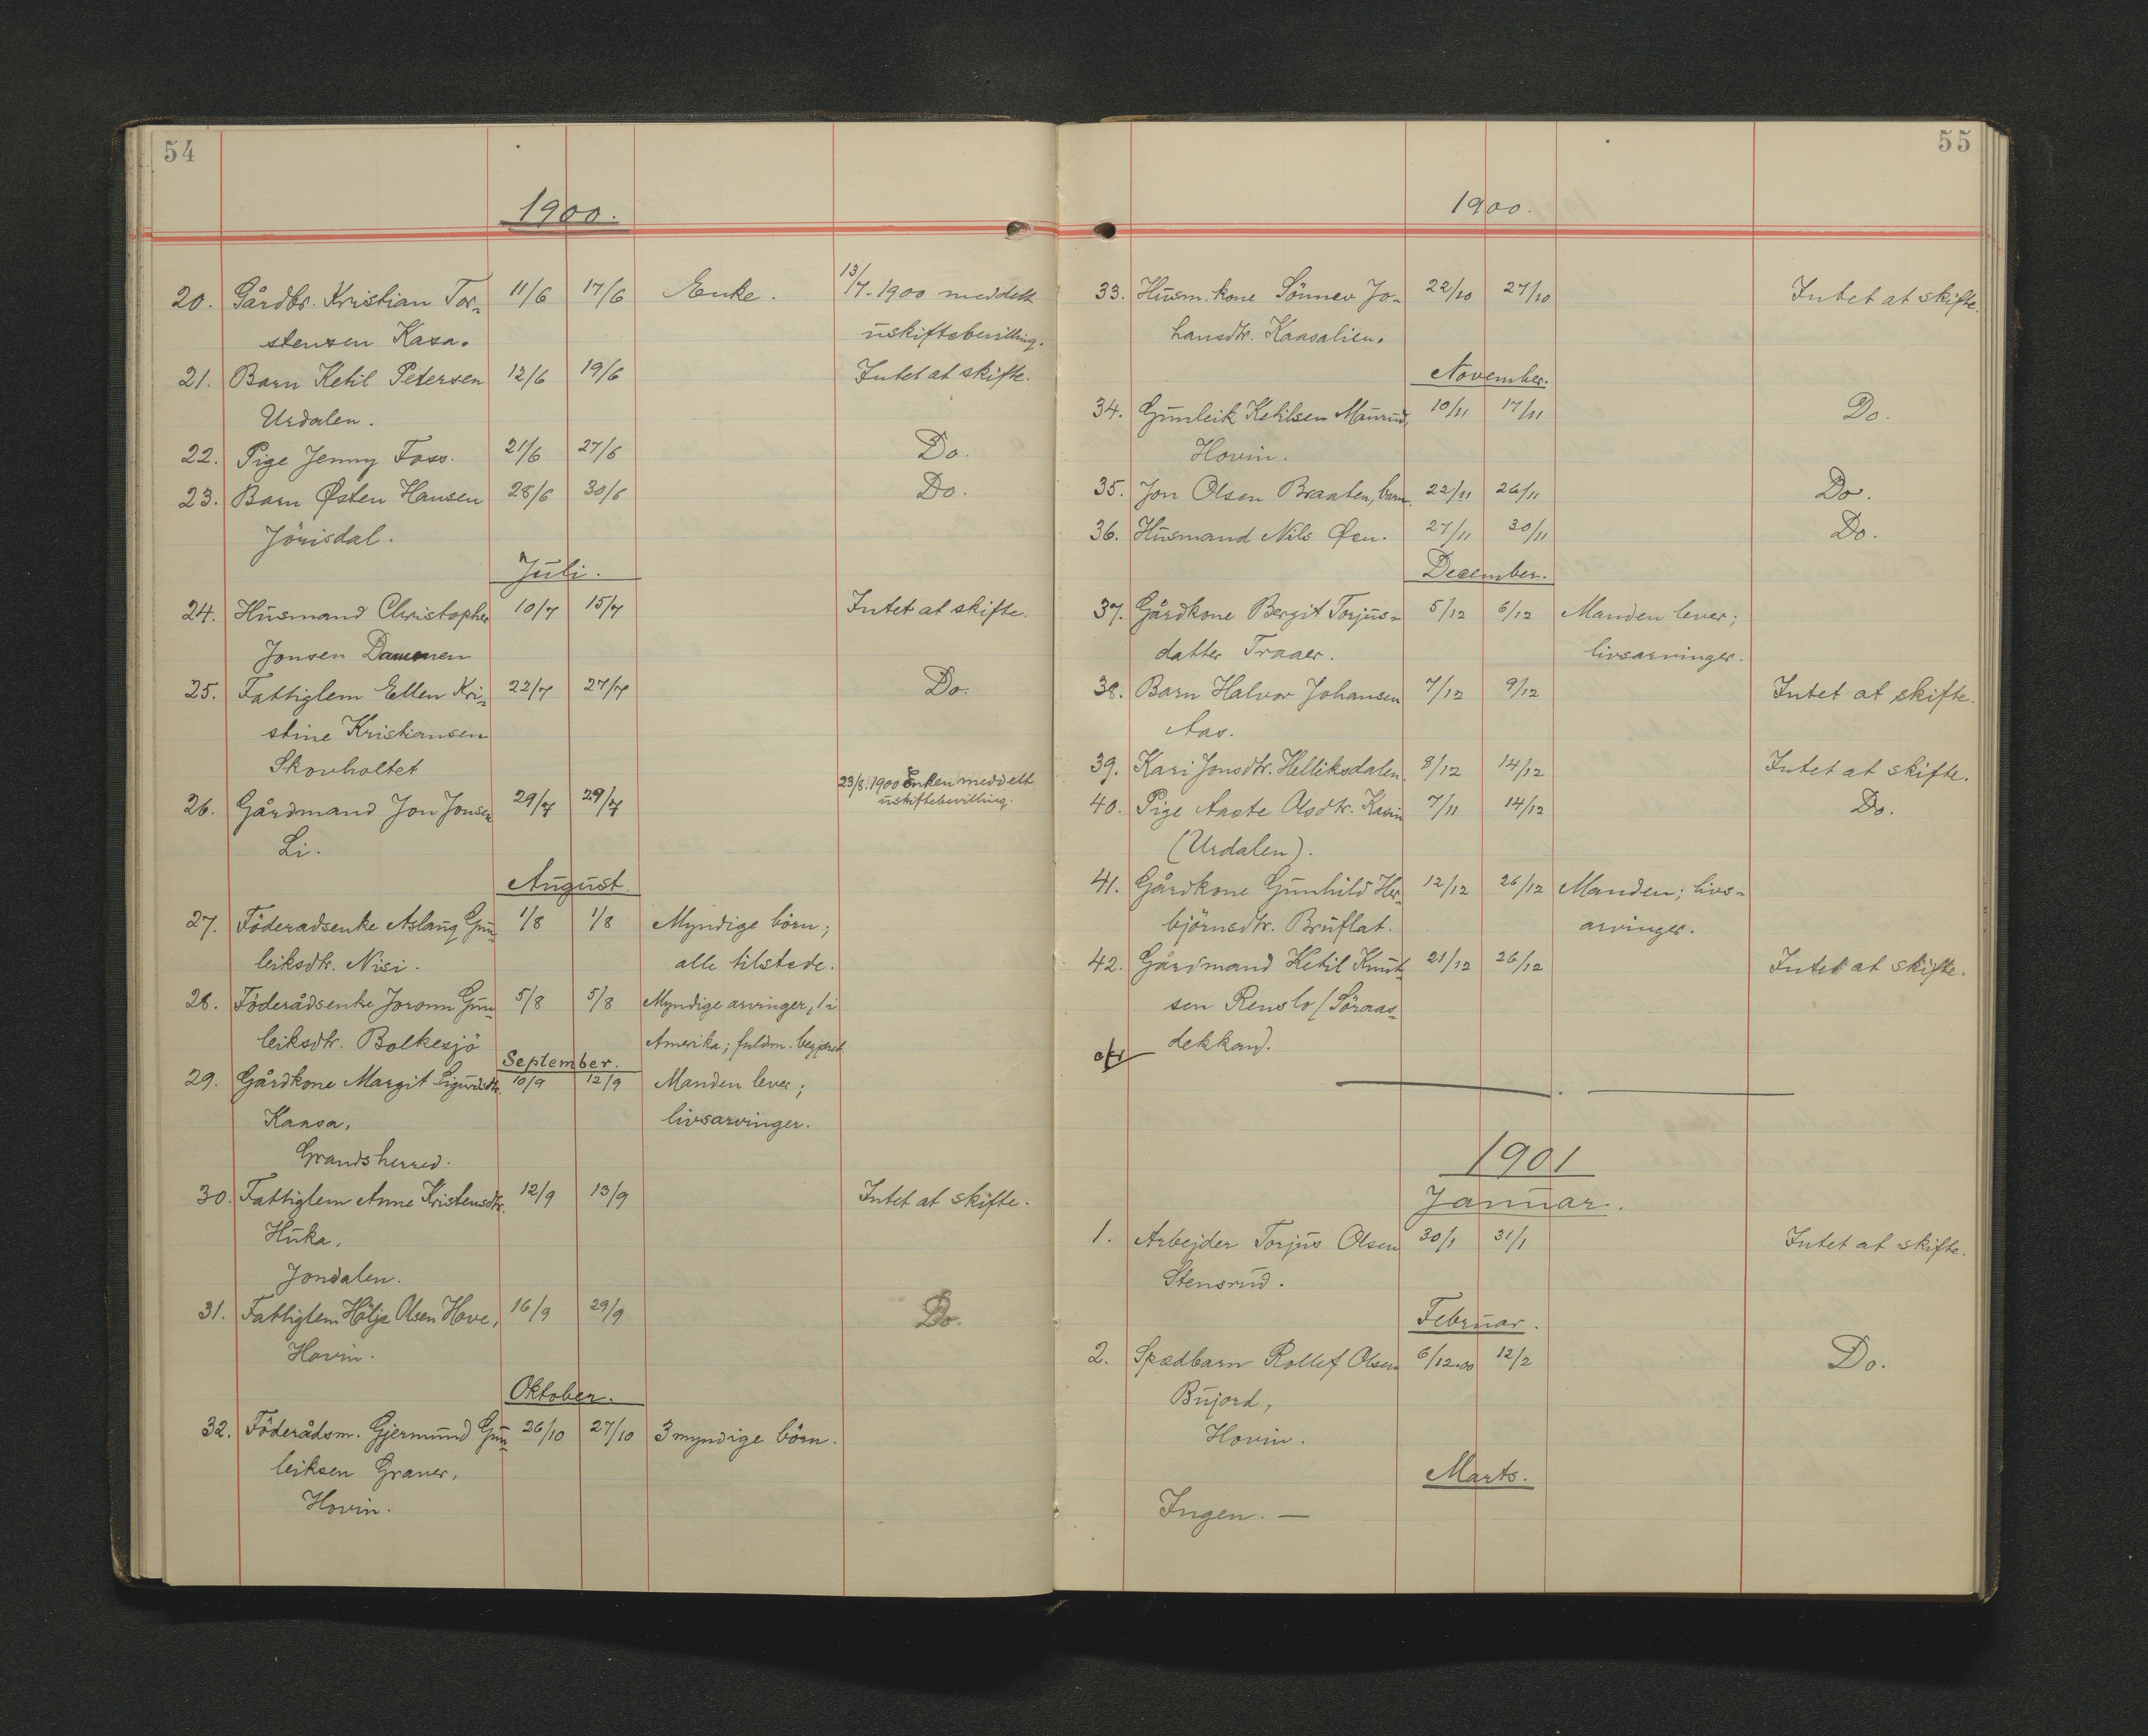 54
1900.
20. Gårdbr. Kristian Tor- 11/6 17/6 Enke. 13/7-1900 meddelt
stensen Kasa. uskiftebevilling.
21. Barn Ketil Petersen 12/6 19/6 Intet at skifte.
Urdalen.
22. Pige Jenny Foss. 21/6 27/6 Do.
23. Barn Østen Hansen 28/6 30/6 Do.
Jörisdal.
Juli.
24. Husmand Christopher 10/7 15/7 Intet at skifte.
Jonsen
25. Fattiglem Ellen Kri- 22/7 27/7 Do.
stine Kristiansen
Skovholtet
23/8.1900 Enken meddelt
26. Gårdmand Jon Jonsen 29/7 29/7 uskiftebevilling.
Li.
August.
27. Föderadsenke Aslaug Gun- 1/8 1/8 Myndige börn;
leiksdtr. Nisi. alle tilstede.
28. Föderådsenke Joronn Gun- 5/8 5/8 Myndige arvinger, 1 i
leiksdtr. Bolkesjö Amerika; fuldm. begjæret.
September.
29. Gårdkone Margit Sigurdsdtr. 10/9 12/9 Manden lever;
Kaasa, livsarvinger.
Grandsherred.
30. Fattiglem Anne Kristensdtr. 12/9 13/9 Intet at skifte.
Huka,
Jondalen.
31. Fattiglem Hölje Olsen Hove, 16/9 29/9 Do.
Hovin.
Oktober.
32. Föderådsm. Gjermund Gun- 26/10 27/10 3 myndige börn.
leiksen Graver,
Hovin.
55
1900.
33. Husm. kone Sönnev Jo- 22/10 27/10 Intet at skifte.
hansdtr. Kaasalien.
November.
34. Gunleik Ketilsen Maurud, 10/11 17/11 Do.
Hovin.
35. Jon Olsen Braaten, barn. 22/11 26/11 Do.
36. Husmand Nils Øen. 27/11 30/11 Do.
December.
37. Gårdkone Bergit Torjus- 5/12 6/12 Manden lever;
datter Traaer. livsarvinger.
38. Barn Halvor Johansen 7/12 9/12 Intet at skifte.
Aas.
39. Kari Jonsdtr. Helliksdalen. 8/12 14/12 Intet at skifte.
40. Pige Aaste Olsdtr. Kasin 7/11 14/12 Do.
(Urdalen).
41. Gårdkone Gunhild Her- 12/12 26/12 Manden; livs-
björnsdtr. Bruflat. arvinger.
42. Gårdmand Ketil Knut- 21/12 26/12 Intet at skifte.
sen Renslo (Söraas-
dekkan).
1901
Januar.
1. Arbejder Torjus Olsen 30/1 31/1 Intet at skifte.
Stensrud.
Februar.
2. Spædbarn Rollef Olsen 6/12.00 12/2 Do.
Bujord,
Hovin.
Marts.
Ingen. —